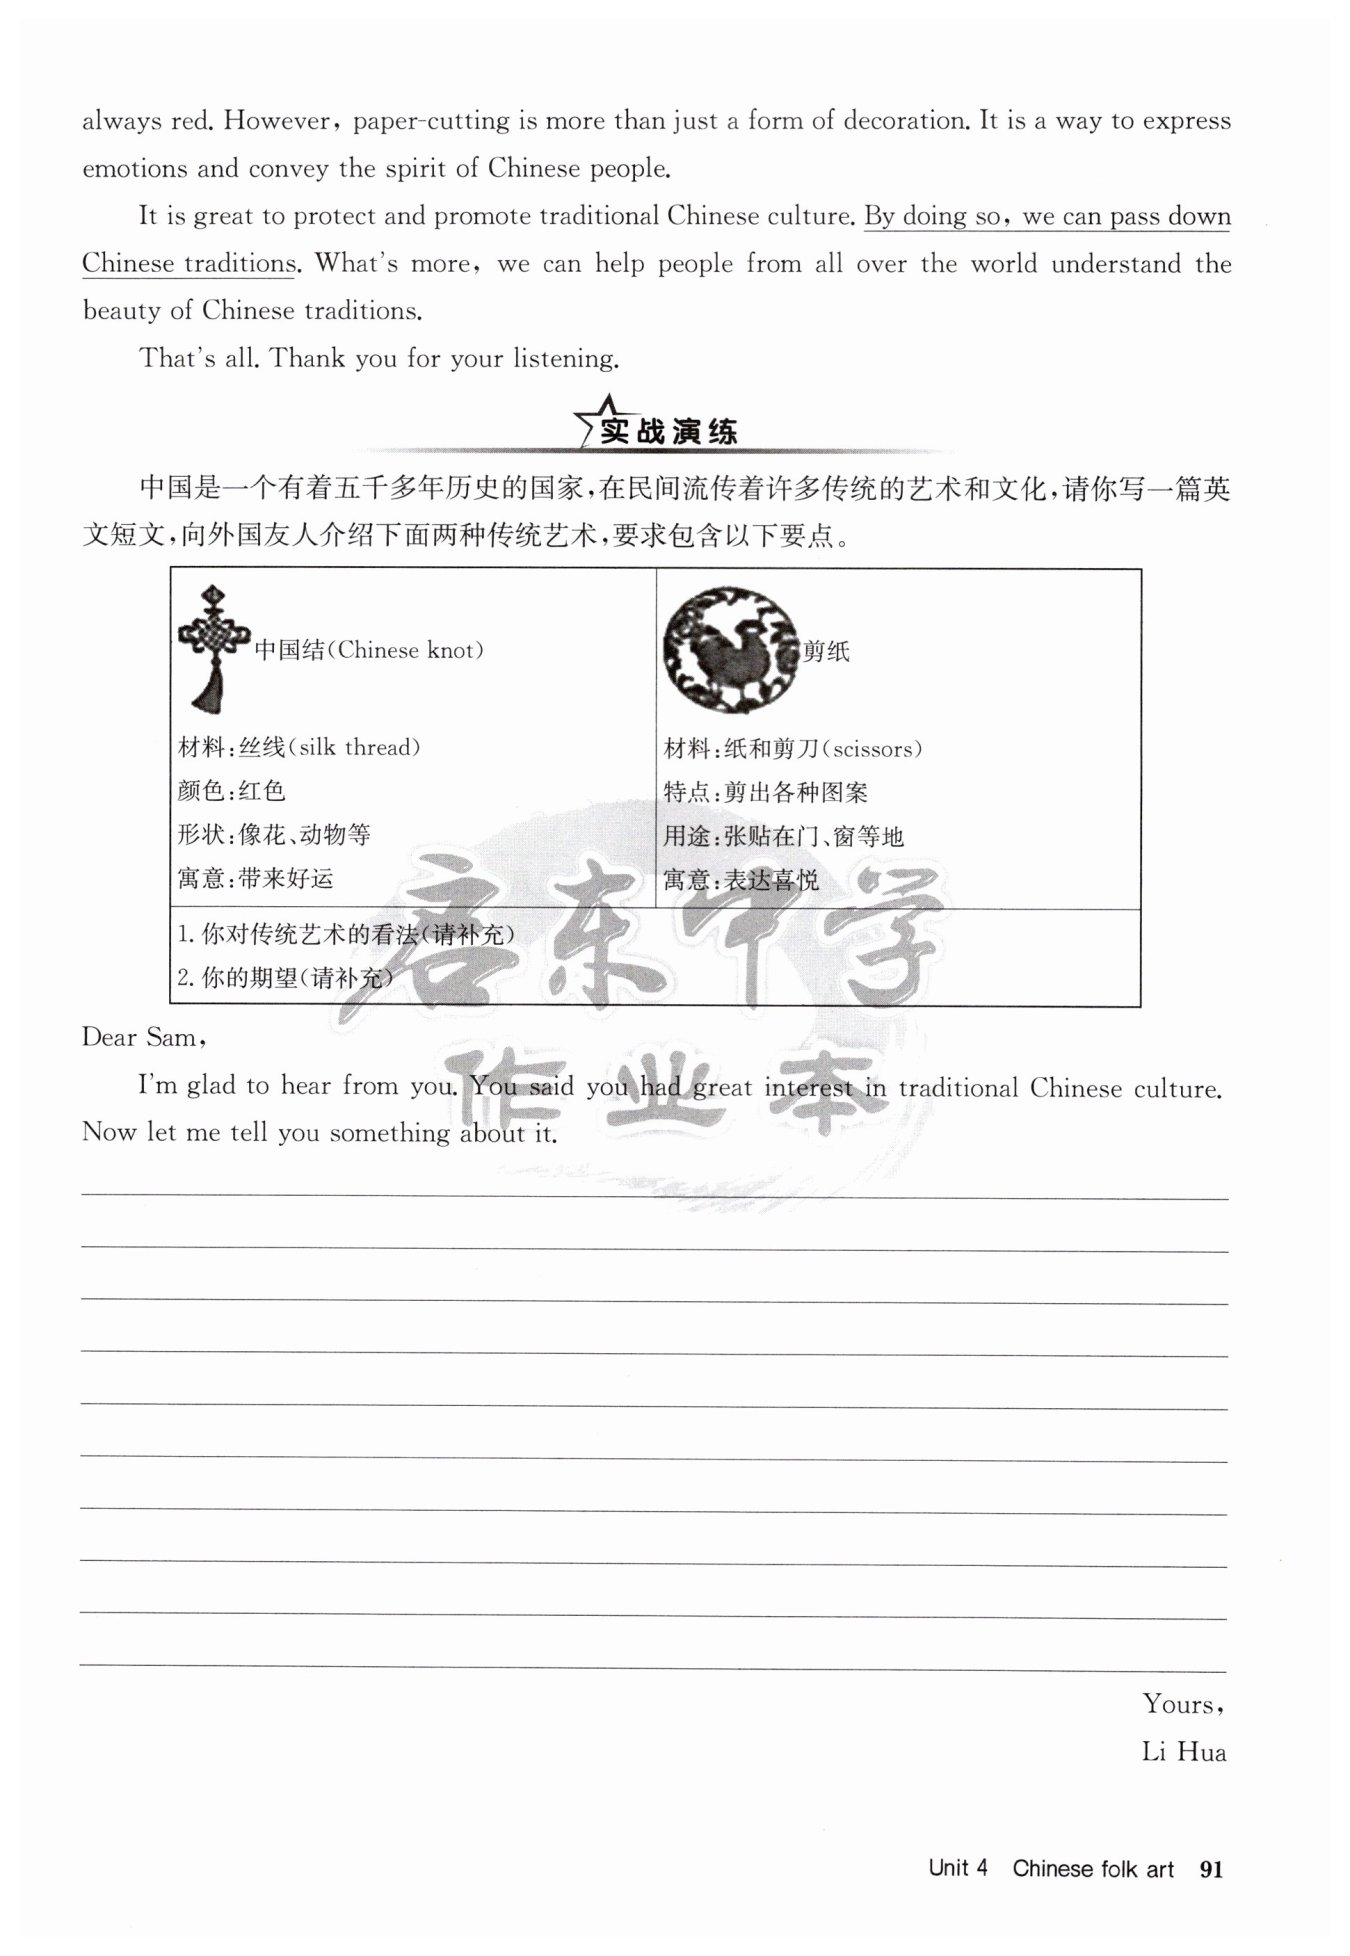 always red. However, paper-cutting is more than just a form of decoration. It is a way to express
emotions and convey the spirit of Chinese people.
It is great to protect and promote traditional Chinese culture. By doing so, we can pass down
Chinese traditions. What's more, we can help people from all over the world understand the
beauty of Chinese traditions.
That's all. Thank you for your listening.
实战演练
中国是一个有着五千多年历史的国家,在民间流传着许多传统的艺术和文化,请你写一篇英
文短文,向外国友人介绍下面两种传统艺术,要求包含以下要点。
中国结(Chinese knot)
材料:丝线(silk thread)
颜色:红色
形状:像花、动物等
寓意:带来好运
剪纸
材料:纸和剪刀(scissors)
特点:剪出各种图案
用途:张贴在门、窗等地
寓意:表达喜悦
1. 你对传统艺术的看法(请补充)
2. 你的期望(请补充)
启东中学
作业本
Dear Sam,
I'm glad to hear from you. You said you had great interest in traditional Chinese culture.
Now let me tell you something about it.
Yours,
Li Hua
Unit 4 Chinese folk art 91